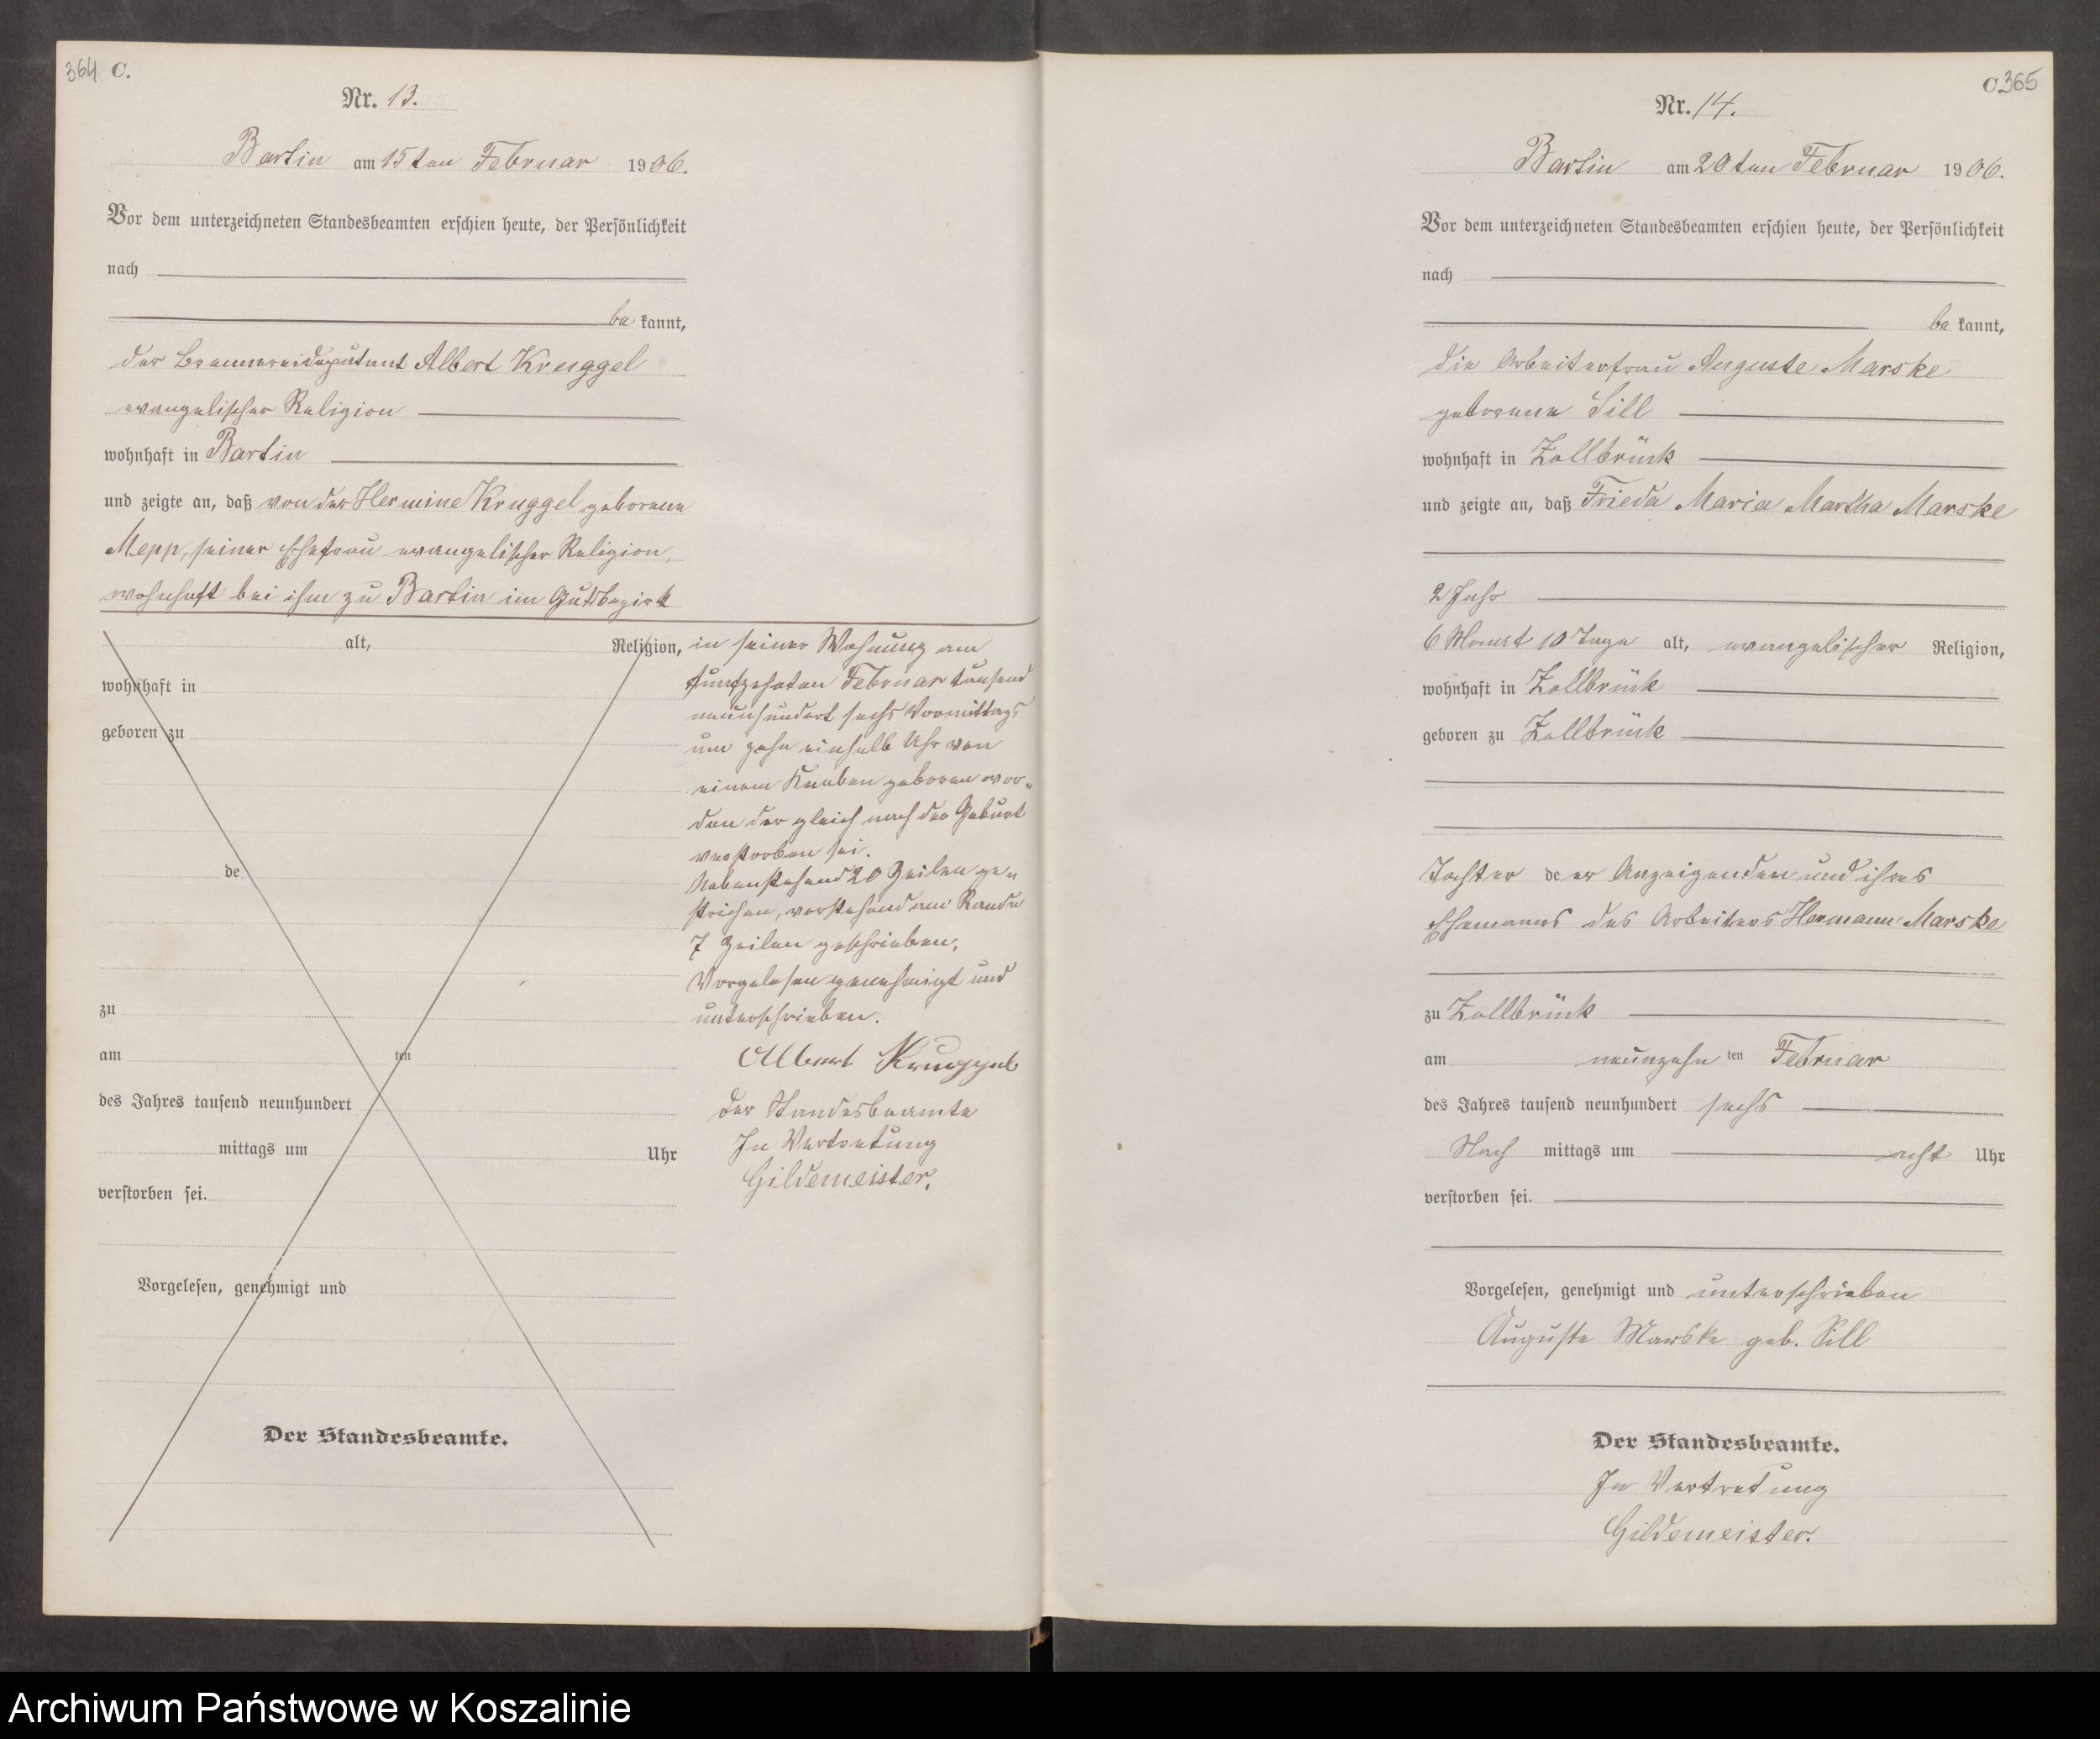 364 C.
Nr. 13.
Bartin am 15ten Februar 1906.
Vor dem unterzeichneten Standesbeamten erschien heute, der Persönlichkeit
nach
be kannt,
der Brennereideputant Albert Kruggel
evangelischer Religion
wohnhaft in Bartin
und zeigte an, daß von der Hermine Kruggel geborene
Mepp, seiner Ehefrau evangelischer Religion,
wohnhaft bei ihm zu Bartin im Gutsbezirk
alt, Religion,
wohnhaft in
geboren zu
de
zu
am ten
des Jahres tausend neunhundert
mittags um Uhr
verstorben sei.
Vorgelesen, genehmigt und
Der Standesbeamte.
in seiner Wohnung am
fünfzehnten Februar tausend
neunhundert sechs Vormittags
um zehn einhalb Uhr von
einem Knaben geboren wor-
den der gleich nach der Geburt
verstorben sei.
Nebenstehend 20 Zeilen ge-
strichen, vorstehend am Rande
7 Zeilen geschrieben.
Vorgelesen genehmigt und
unterschrieben.
Albert Kruggel
Der Standesbeamte
In Vertretung
Gildemeister.
C. 365
Nr. 14.
Bartin am 20ten Februar 1906.
Vor dem unterzeichneten Standesbeamten erschien heute, der Persönlichkeit
nach
be kannt,
die Arbeiterfrau Auguste Marske
geborene Sill
wohnhaft in Zollbrück
und zeigte an, daß Frieda Maria Martha Marske
2 Jahr
6 Monat 10 Tage alt, evangelischer Religion,
wohnhaft in Zollbrück
geboren zu Zollbrück
Tochter de er Anzeigenden und ihres
Ehemanns des Arbeiters Hermann Marske
zu Zollbrück
am neunzehn ten Februar
des Jahres tausend neunhundert sechs
Nach mittags um acht Uhr
verstorben sei.
Vorgelesen, genehmigt und unterschrieben
Auguste Marske geb. Sill
Der Standesbeamte.
In Vertretung
Gildemeister.
Archiwum Państwowe w Koszalinie